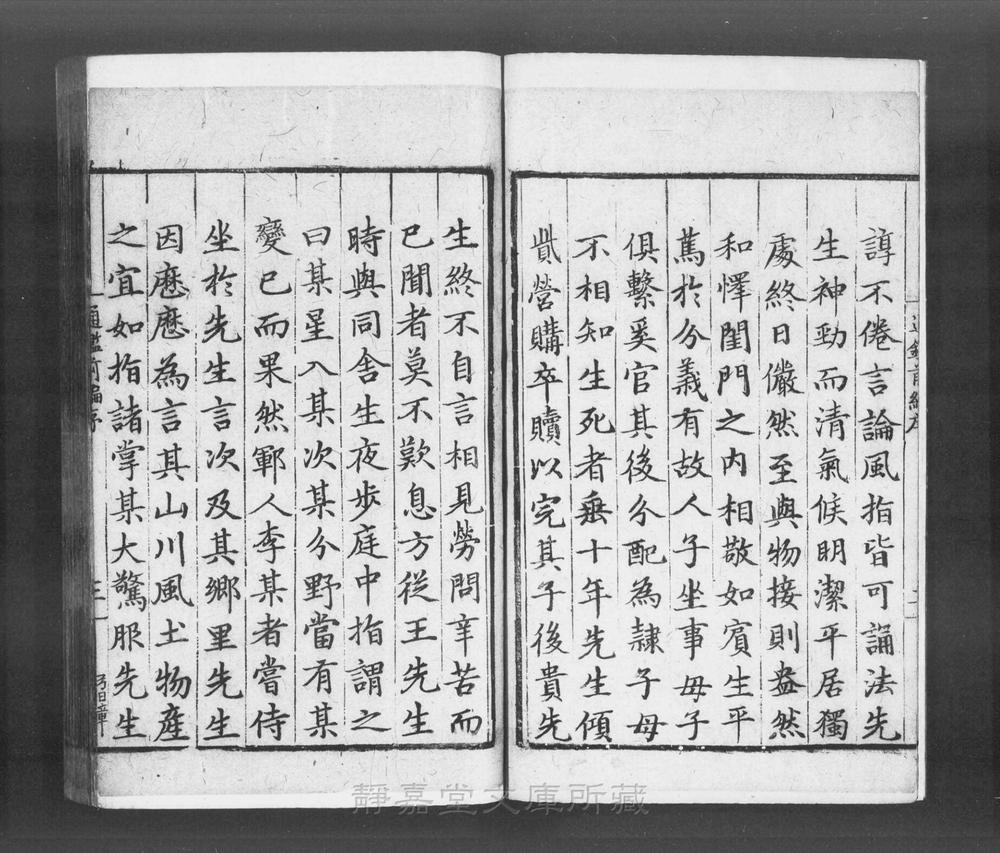 諄不倦言論風指皆可誦法先
生神勁而清氣候明潔平居獨
處終日儼然至與物接則盎然
和懌閨門之内相敬如賓生平
篤於分義有故人子坐事母子
俱繫奚官其後分配為隷子母
不相知生死者垂十年先生傾
貲營購卒贖以完其子後貴先
通鑑前編序
二
生終不自言相見勞問辛苦而
已聞者莫不歎息方從王先生
時與同舍生夜歩庭中指謂之
曰某星入某次某分野當有某
變已而果然鄆人李某者嘗侍
坐於先生言次及其鄉里先生
因歷歷為言其山川風土物産
之宜如指諸掌某大驚服先生
通鑑前編序
三
静嘉堂文庫所藏